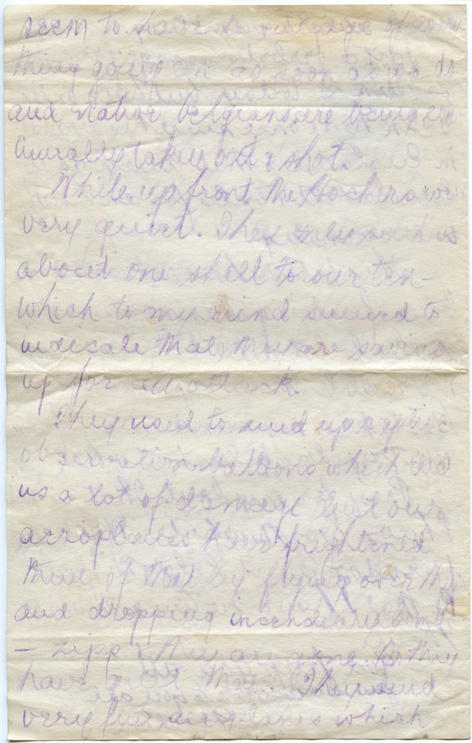 seem to have
thing going on as soon as
and native Belgians are being con
tinually taken out & shot.
While up front the Boches were
very quiet. They only send us
about one shell to our ten -
which to my mind seemed to
indicate that they are saving
up for an attack.
They used to send up captive
observation balloons which did
us a lot of damage but our
aeroplanes have frightened
them of that by flying over them
and dropping incendiary bombs
- zipp & they are gone. So they
have They send
very few airoplanes which